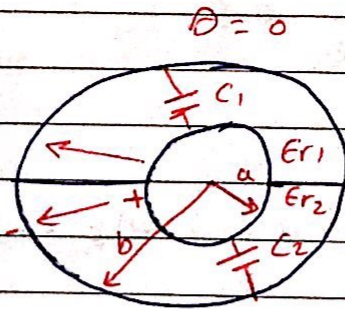 θ = 0
C1
Er1
a
Er2
+
-
b
C2